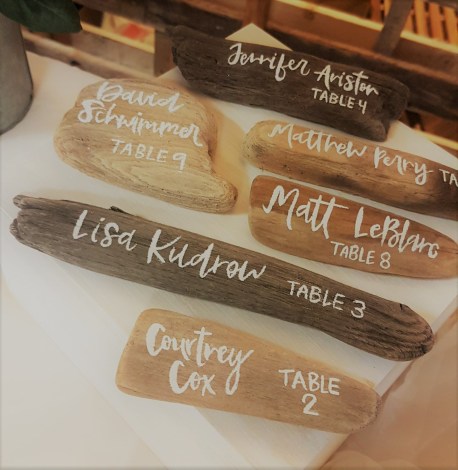 Jennifer Aniston
TABLE 4
David
Schwimmer
TABLE 9
Matthew Perry TA
Matt LeBlanc
TABLE 8
Lisa Kudrow TABLE 3
Courtney
Cox
TABLE
2